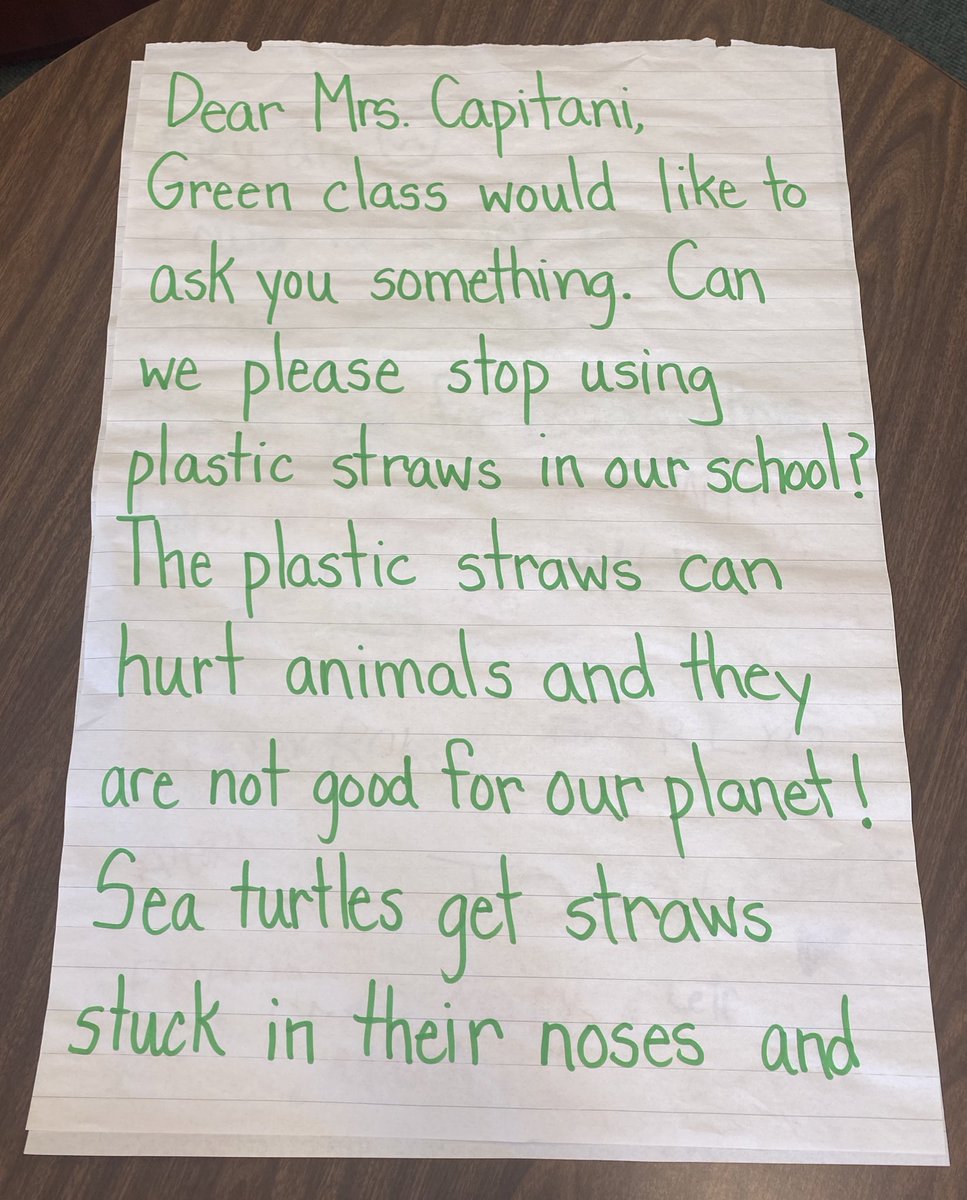 Dear Mrs. Capitani,
Green class would like to
ask you something. Can
we please stop using
plastic straws in our school?
The plastic straws can
hurt animals and they
are not good for our planet!
Sea turtles get straws
stuck in their noses and